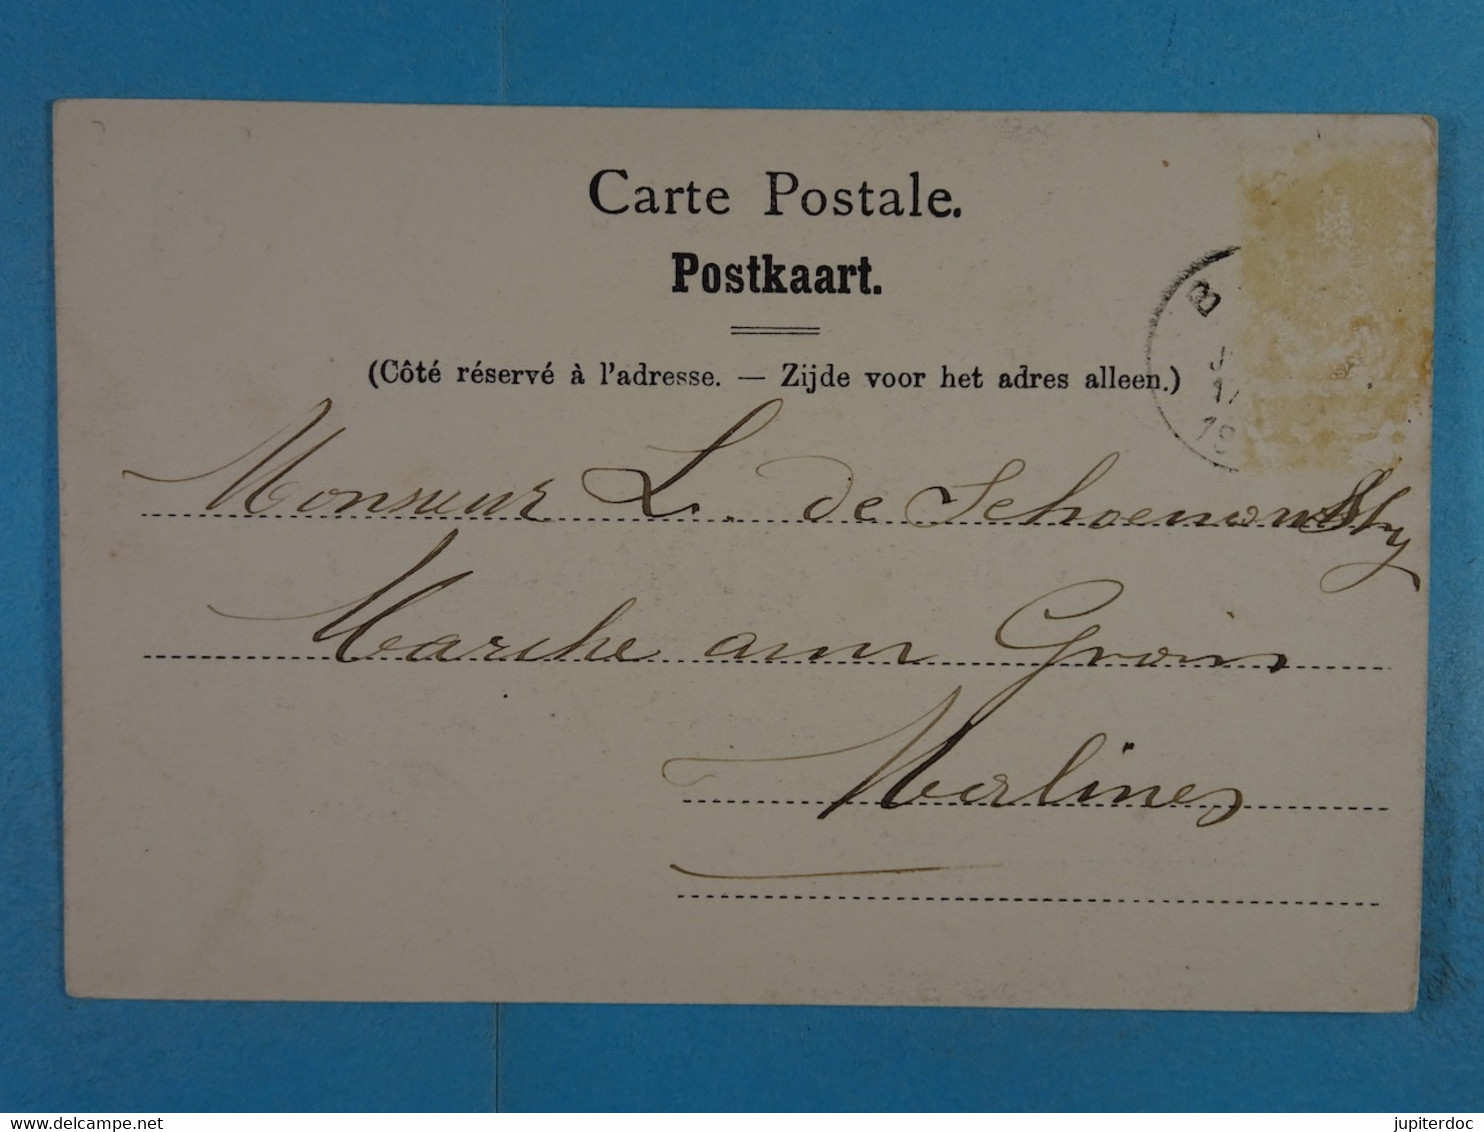 Carte Postale.
Postkaart.
(Côté réservé à l'adresse. — Zijde voor het adres alleen.)
B
J
17
19
Monsieur L. de Schoenowsky
Marche aum Grains
Malines
delcampe.net
jupiterdoc